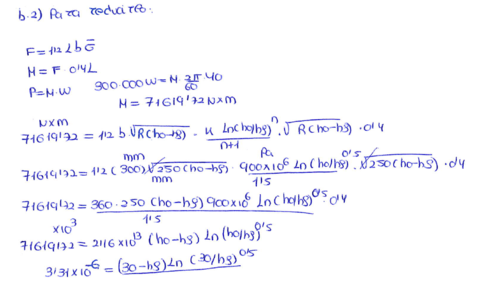 b.2) Para reducirlo:
F=1'12 L b σ̄
M = F 0'4L
P=M·W 300.000W = M · 2π/60 · 40
M = 71619'72 N×m
N×m
71619'72 = 1'12 b · √R(ho-hf) · K Ln(ho/hf)^n / n+1 · √R(ho-hf) · 0'4
mm Pa
71619'72 = 1'12 (300) √250(ho-hf) · 900×10^6 Ln(ho/hf)^0'5 / 1'5 · √250(ho-hf) · 0'4
mm
71619'72 = 360·250 (ho-hf) 900×10^6 Ln(ho/hf)^0'5 / 1'5 · 0'4
×10^3
71619'72 = 2'16×10^13 (ho-hf) Ln(ho/hf)^0'5
3'31×10^-6 = (30-hf) Ln (30/hf)^0'5